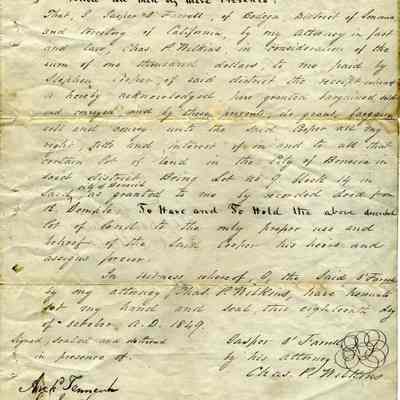 Know all men by these Presents:
That, I Jasper O'Farrell, of Bodega District of Sonoma
and territory of California, by my attorney in fact
and law, Chas. P. Wilkins, in consideration of the
sum of one thousand dollars, to me paid by
Stephen Cooper, of said district the receipt whereof
is hereby acknowledged have granted bargained sold
and conveyed, and by these presents, do grant, bargain
sell and convey unto the said Cooper all my
right, title and interest of in and to all that
certain lot of land in the City of Benicia in
said district. Being Lot No 9 block 14 in
said city of Benicia, as granted to me by recorded deed from
R. Semple. To Have and To Hold the above described
lot of land to the only proper use and
behoof of the said Cooper his heirs and
assigns forever.
In witness whereof, I, the Said O'Farrell
by my attorney Chas. P. Wilkins, have hereunto
set my hand and seal, this eighteenth day
of October, A.D. 1849.
Signed, sealed and delivered
in presence of.
Gasper O'Farrell
by his attorney
Chas. P. Wilkins
Tennent